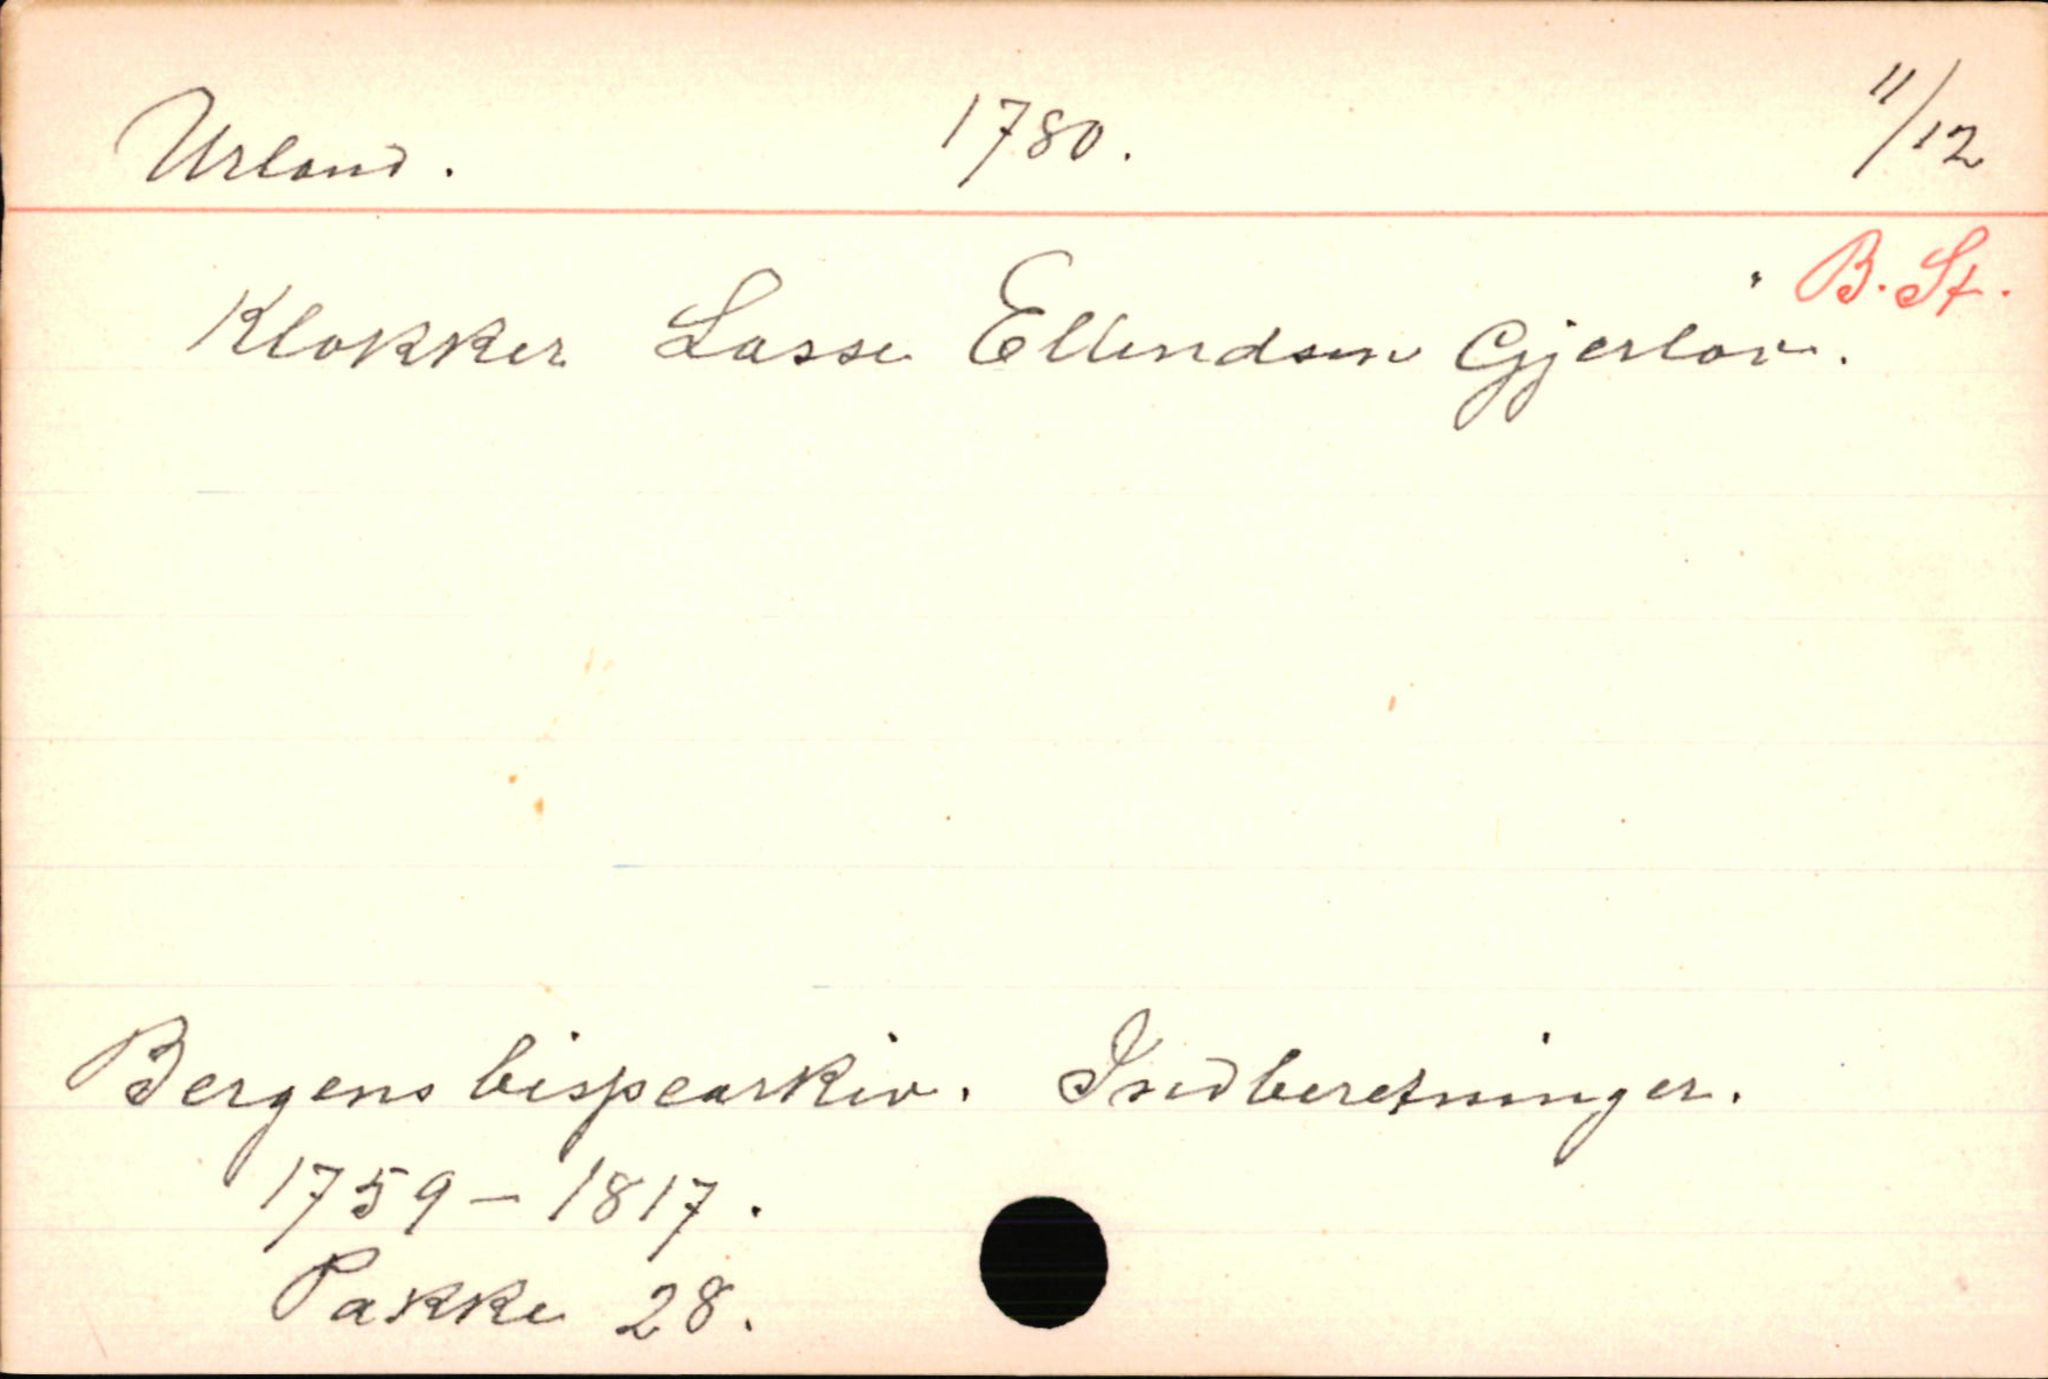 Urland. 1780. 11/12
B. St.
Klokker Lasse Ellendsen Gjerløv.
Bergens bispearkiv. Indberetninger.
1759-1817.
Pakke 28.